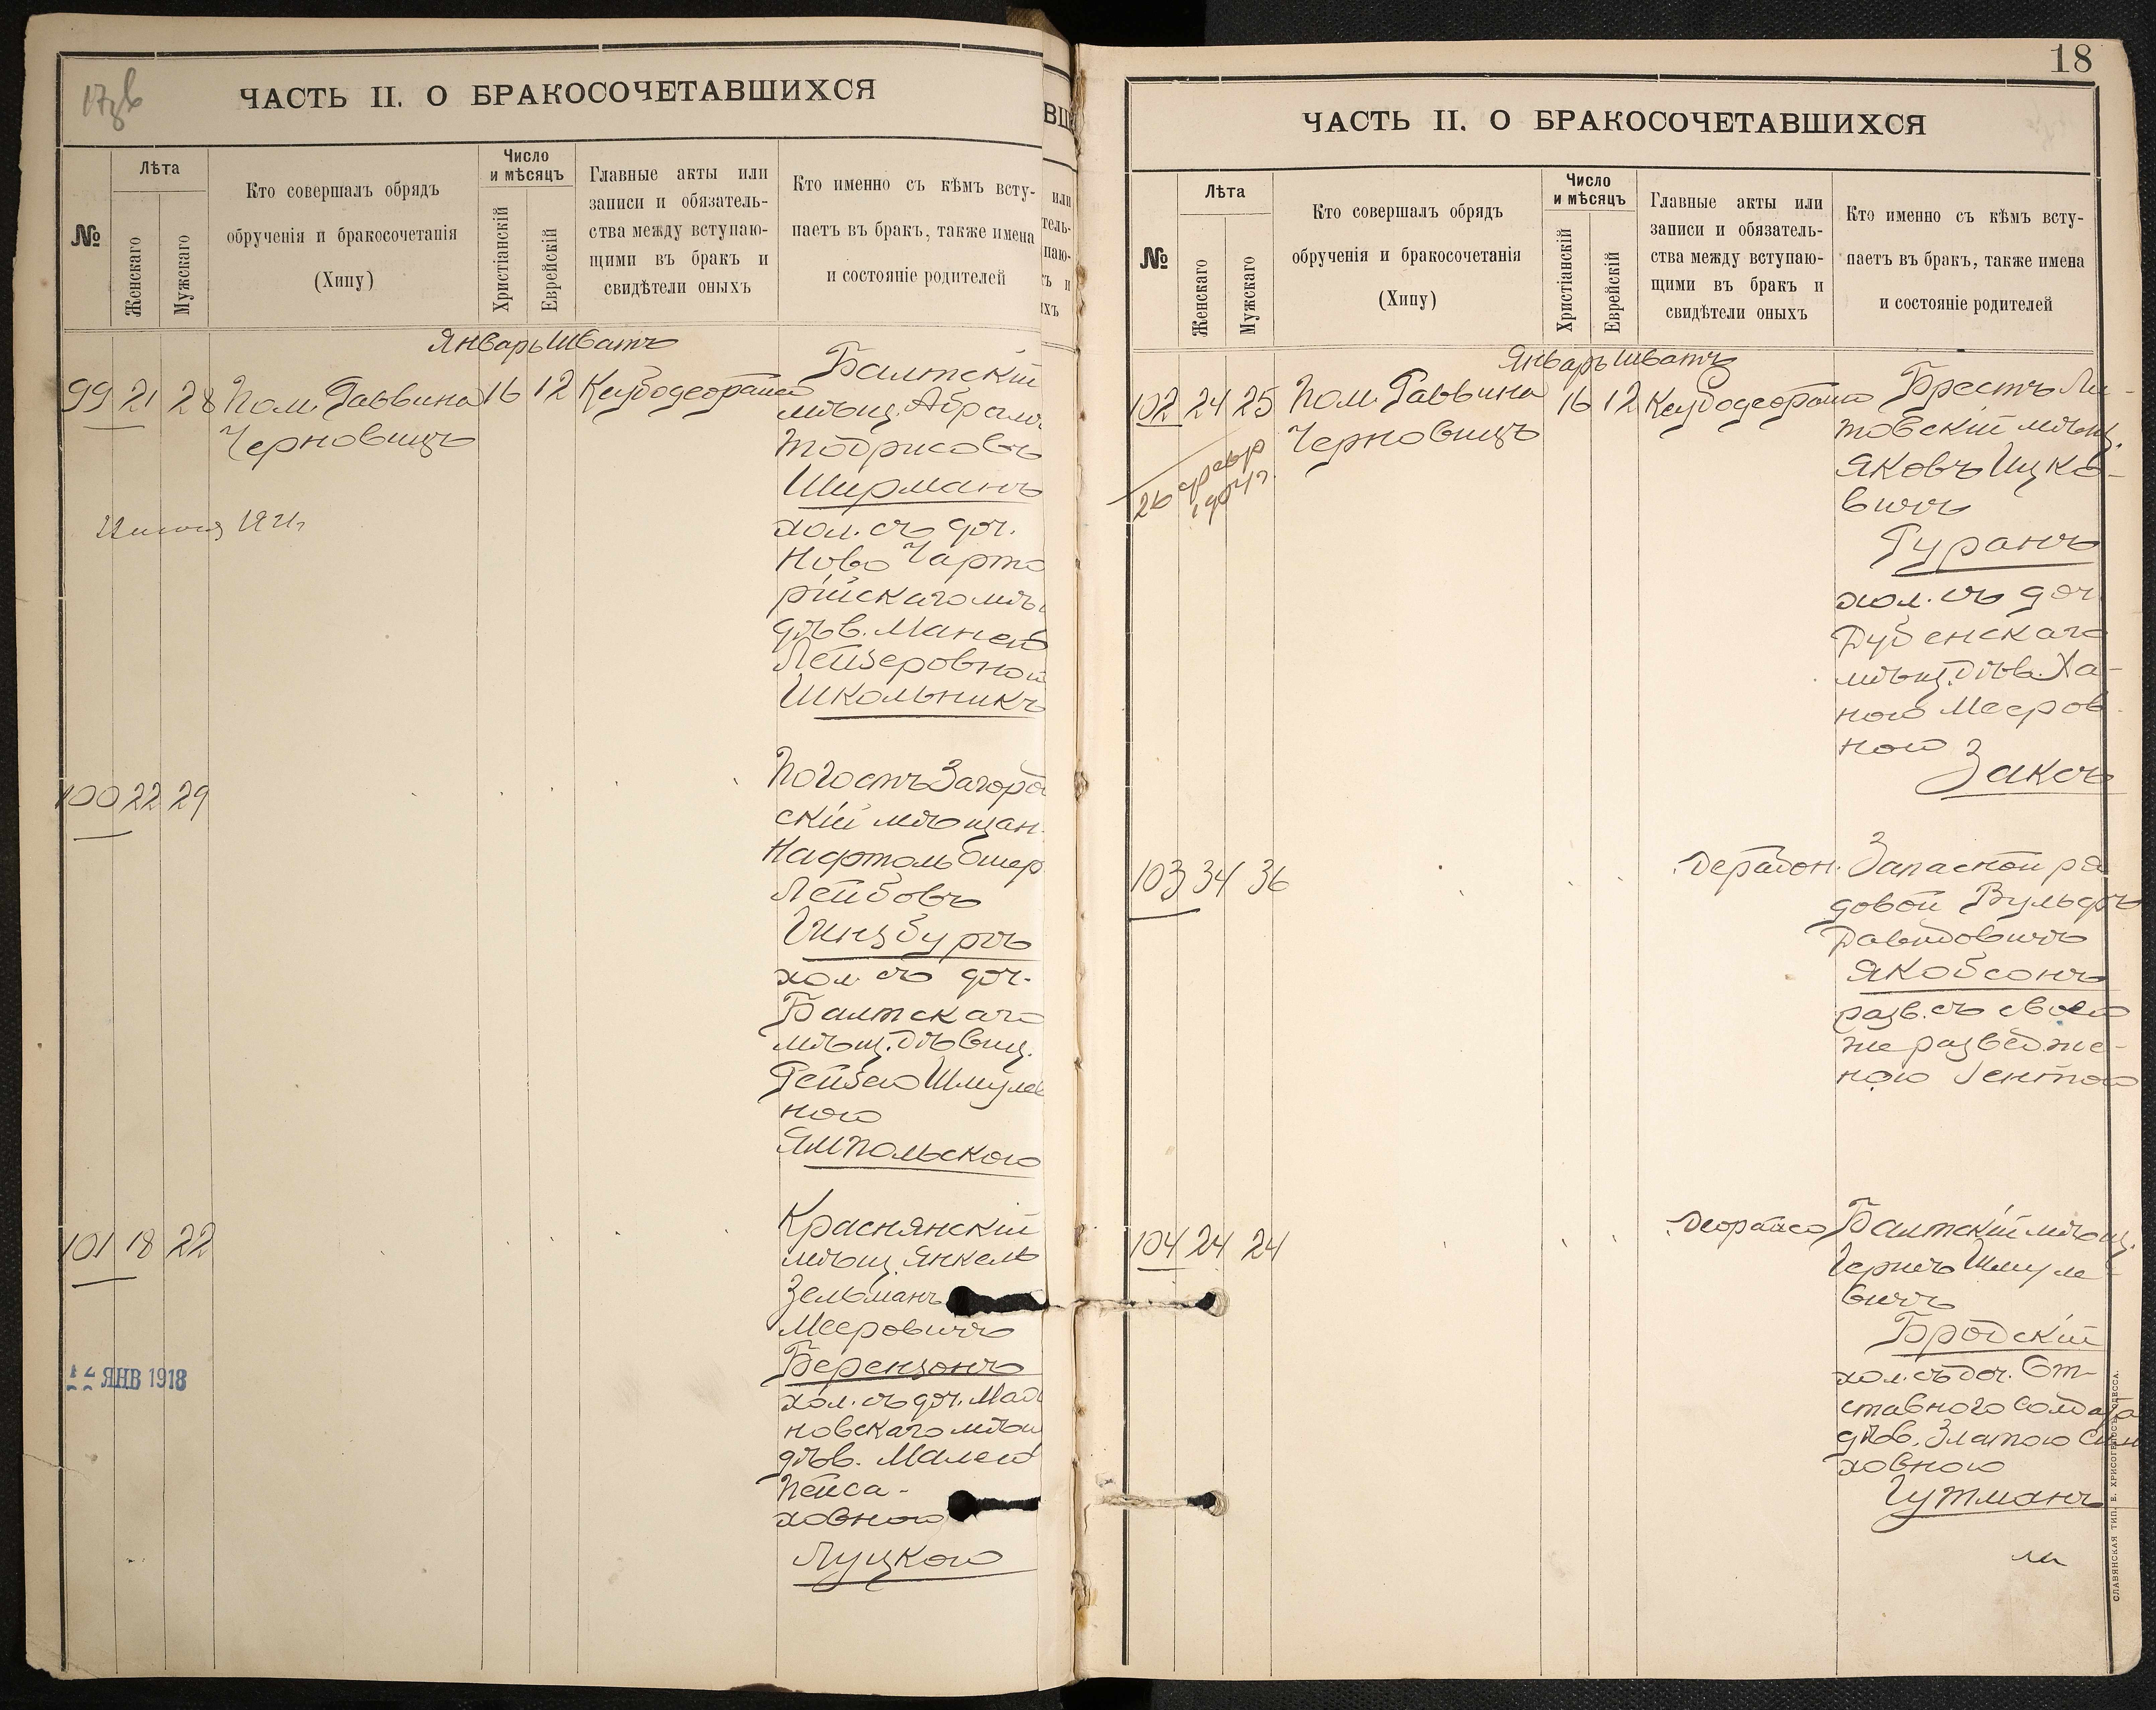 17об
ЧАСТЬ II. О БРАКОСОЧЕТАВШИХСЯ
№
Лѣта
Женскаго
Мужскаго
Кто совершалъ обрядъ
обрученія и бракосочетанія
(Хипу)
Число
и мѣсяцъ
Христіанскій
Еврейскій
Главные акты или
записи и обязатель-
ства между вступаю-
щими въ бракъ и
свидѣтели оныхъ
Кто именно съ кѣмъ всту-
паетъ въ бракъ, также имена
и состояніе родителей
Январь Шватъ
99 21 28 Пом. Раввина 16 12
Черновицъ
Балтскій
мѣщ. Абрамъ
Тодрисовъ
Ширманъ
хол. съ доч.
Ново Чарто
рійскаго мѣщ
дѣв. Манею
Лейзеровной
Школьникъ
100 22 29
Погостъ Загород
скій мѣщан.
Нафтоль Ошер
Лейбовъ
Гинзбургъ
хол. съ доч.
Балтскаго
мѣщ. дѣвиц.
Рейзею Шмулев
ною
Ямпольскою
101 18 22
Краснянскій
мѣщ. Янкель
Зельманъ
Мееровичъ
Берензонъ
хол. съ доч.
новскаго мѣщ
дѣв. Малею
Пейса-
ховною
Луцкою
ЯНВ 1918
18
ЧАСТЬ II. О БРАКОСОЧЕТАВШИХСЯ
№
Лѣта
Женскаго
Мужскаго
Кто совершалъ обрядъ
обрученія и бракосочетанія
(Хипу)
Число
и мѣсяцъ
Христіанскій
Еврейскій
Главные акты или
записи и обязатель-
ства между вступаю-
щими въ бракъ и
свидѣтели оныхъ
Кто именно съ кѣмъ всту-
паетъ въ бракъ, также имена
и состояніе родителей
Январь Шватъ
102 24 25 Пом. Раввина 16 12
Черновицъ
Брестъ Ли-
товскій мѣщ.
Яковъ Ицко-
вичъ
Гуранъ
хол. съ доч
Дубенскаго
мѣщ. дѣв. Ха-
ною Мееров
ною
Заксъ
103 34 36
Запасной ря
довой Вульфъ
Давидовичъ
Якобсонъ
разв. съ своею
же развед же-
ною Гентою
104 24 24
Балтскій мѣщ.
Гершъ Шмуле
вичъ
Бродскій
хол. съ доч. От-
ставного солдата
дѣв. Златою
ховною
Гутманъ
СЛАВЯНСКАЯ ТИП. Е. ХРИСОГЕЛОСЪ, ОДЕССА.